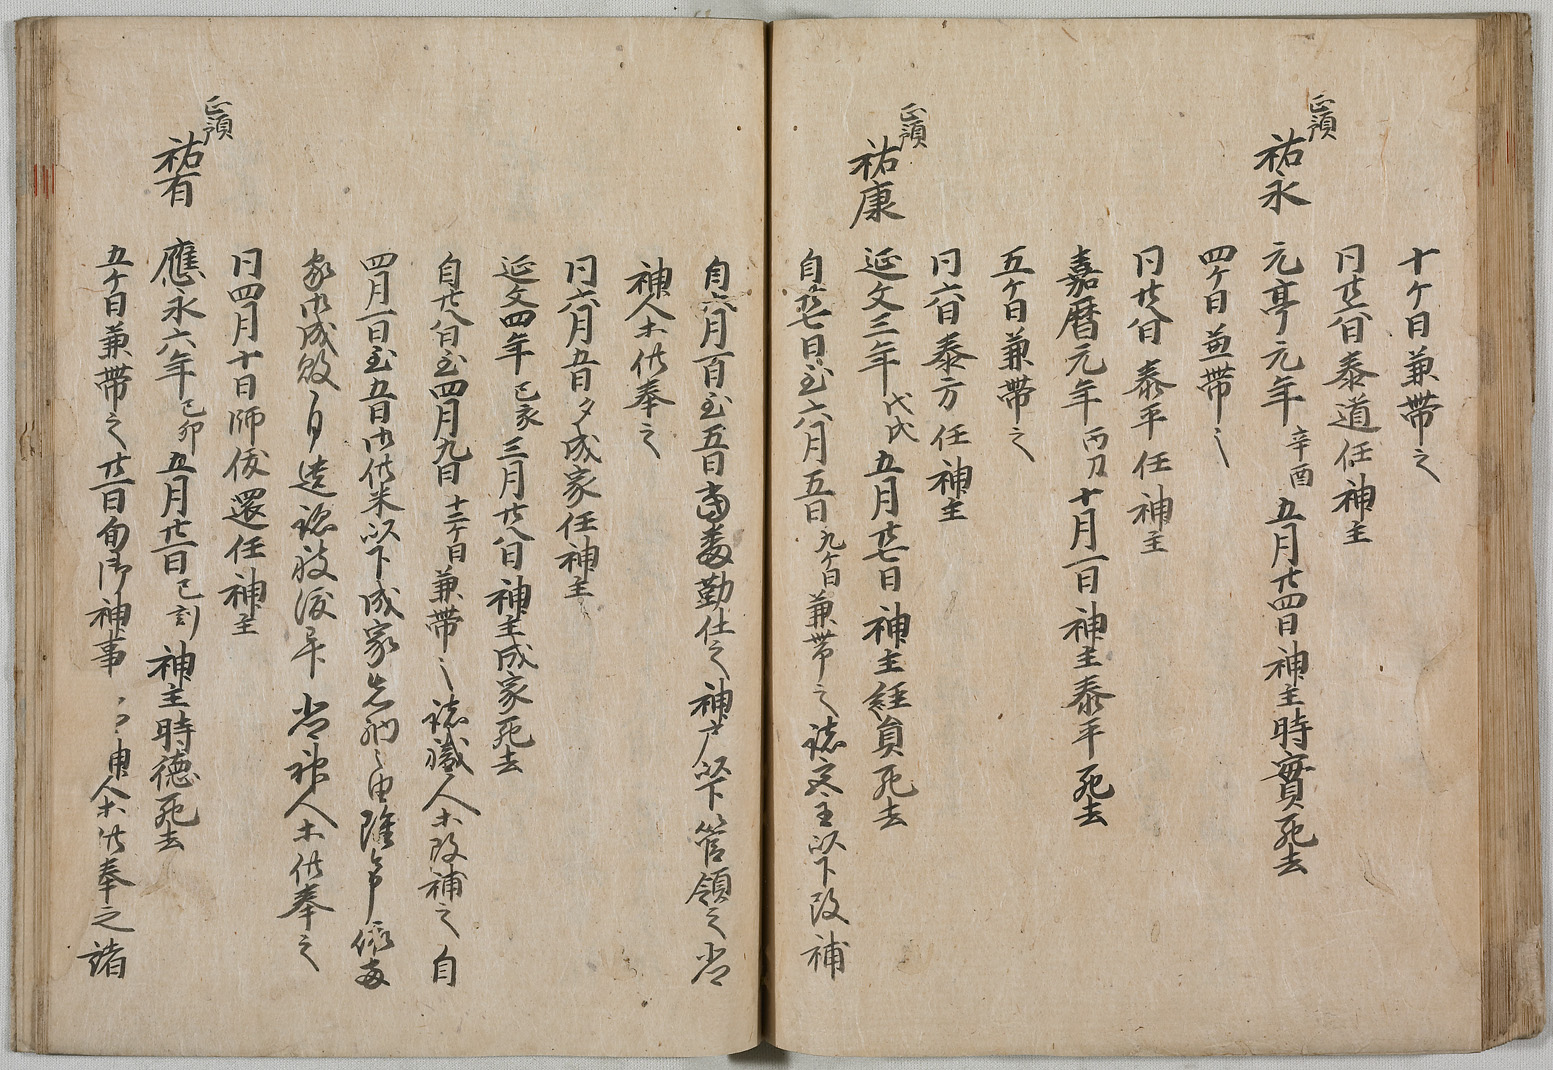 十ケ日兼帯之
同廿六日泰道任神主
正預
祐永 元亨元年辛酉五月廿四日神主時實死去
四ケ日兼帯之
同廿八日泰平任神主
嘉暦元年丙刀十月一日神主泰平死去
五ケ日兼帯之
同六日泰方任神主
正預
祐康 延文三年戊戌五月廿七日神主経員死去
自廿七日至六月五日九ケ日兼帯之諸宮主以下改補
自六月一日至五日当番勤仕之神戸以下管領之当
神人木供奉之
同六月五日夕成家任神主
延文四年己亥三月廿八日神主成家死去
自廿八日至四月九日十二ケ日兼帯之諸職人木改補之自
四月一日至五日御供米以下成家先納之由
家御成敗 当神人木供奉之
同四月十日師俊還任神主
正預
祐有 應永六年己卯五月廿一日己刻神主時徳死去
五ケ日兼帯之廿一日旬御神事 神人木供奉之諸